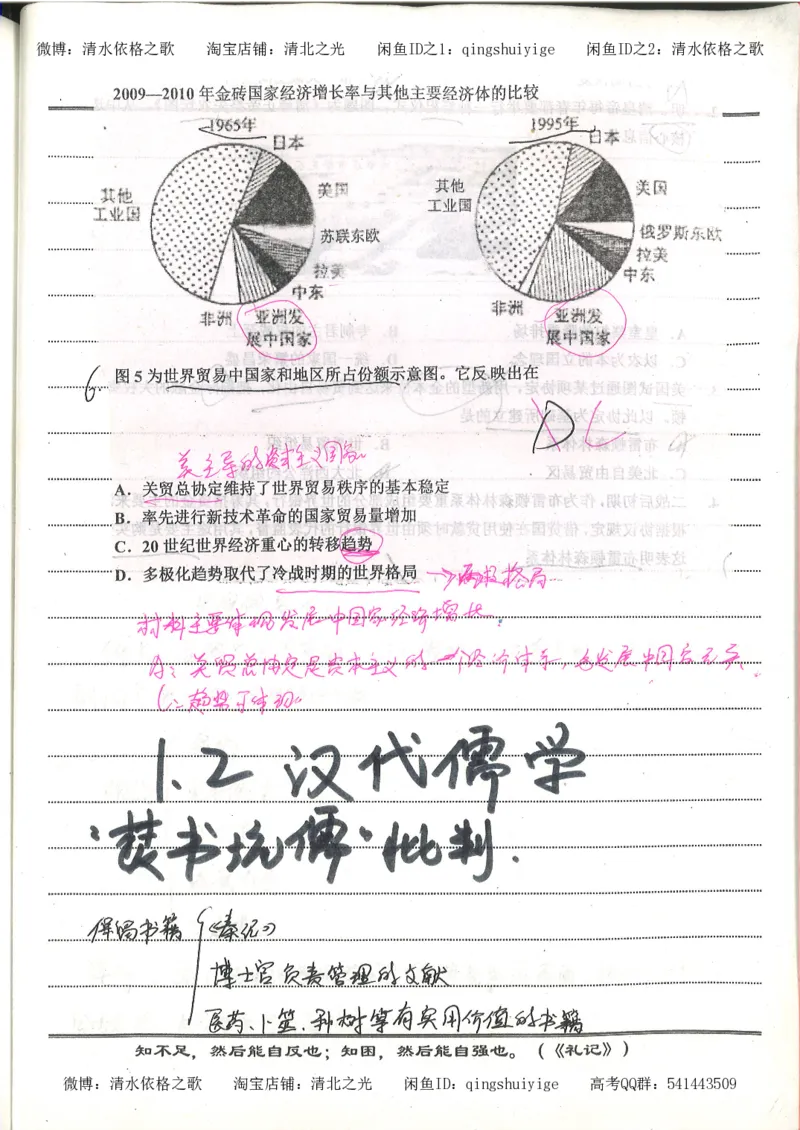 微博：清水依格之歌 淘宝店铺：清北之光 闲鱼ID之1：qingshuiyige 闲鱼ID之2：清水依格之歌
2009—2010年金砖国家经济增长率与其他主要经济体的比较
1965年 1995年
日本 日本
其他工业国 美国 其他工业国 美国
苏联东欧 俄罗斯东欧
拉美 拉美
中东 中东
非洲 亚洲发展中国家 非洲 亚洲发展中国家
6 图5为世界贸易中国家和地区所占份额示意图。它反映出在
D C
美主导的资本主义国家
A．关贸总协定维持了世界贸易秩序的基本稳定
B．率先进行新技术革命的国家贸易量增加
C．20世纪世界经济重心的转移趋势
D．多极化趋势取代了冷战时期的世界格局 →两极格局
材料主要体现发展中国家经济增长.
A：关贸总协定是资本主义的一个经济体系，与发展中国家无关.
C：趋势可体现
1.2 汉代儒学
“焚书坑儒”批判.
保留书籍 《秦记》
博士官负责管理的文献
医药、卜筮、种树等有实用价值的书籍
知不足，然后能自反也；知困，然后能自强也。（《礼记》）
微博：清水依格之歌 淘宝店铺：清北之光 闲鱼ID：qingshuiyige 高考QQ群：541443509